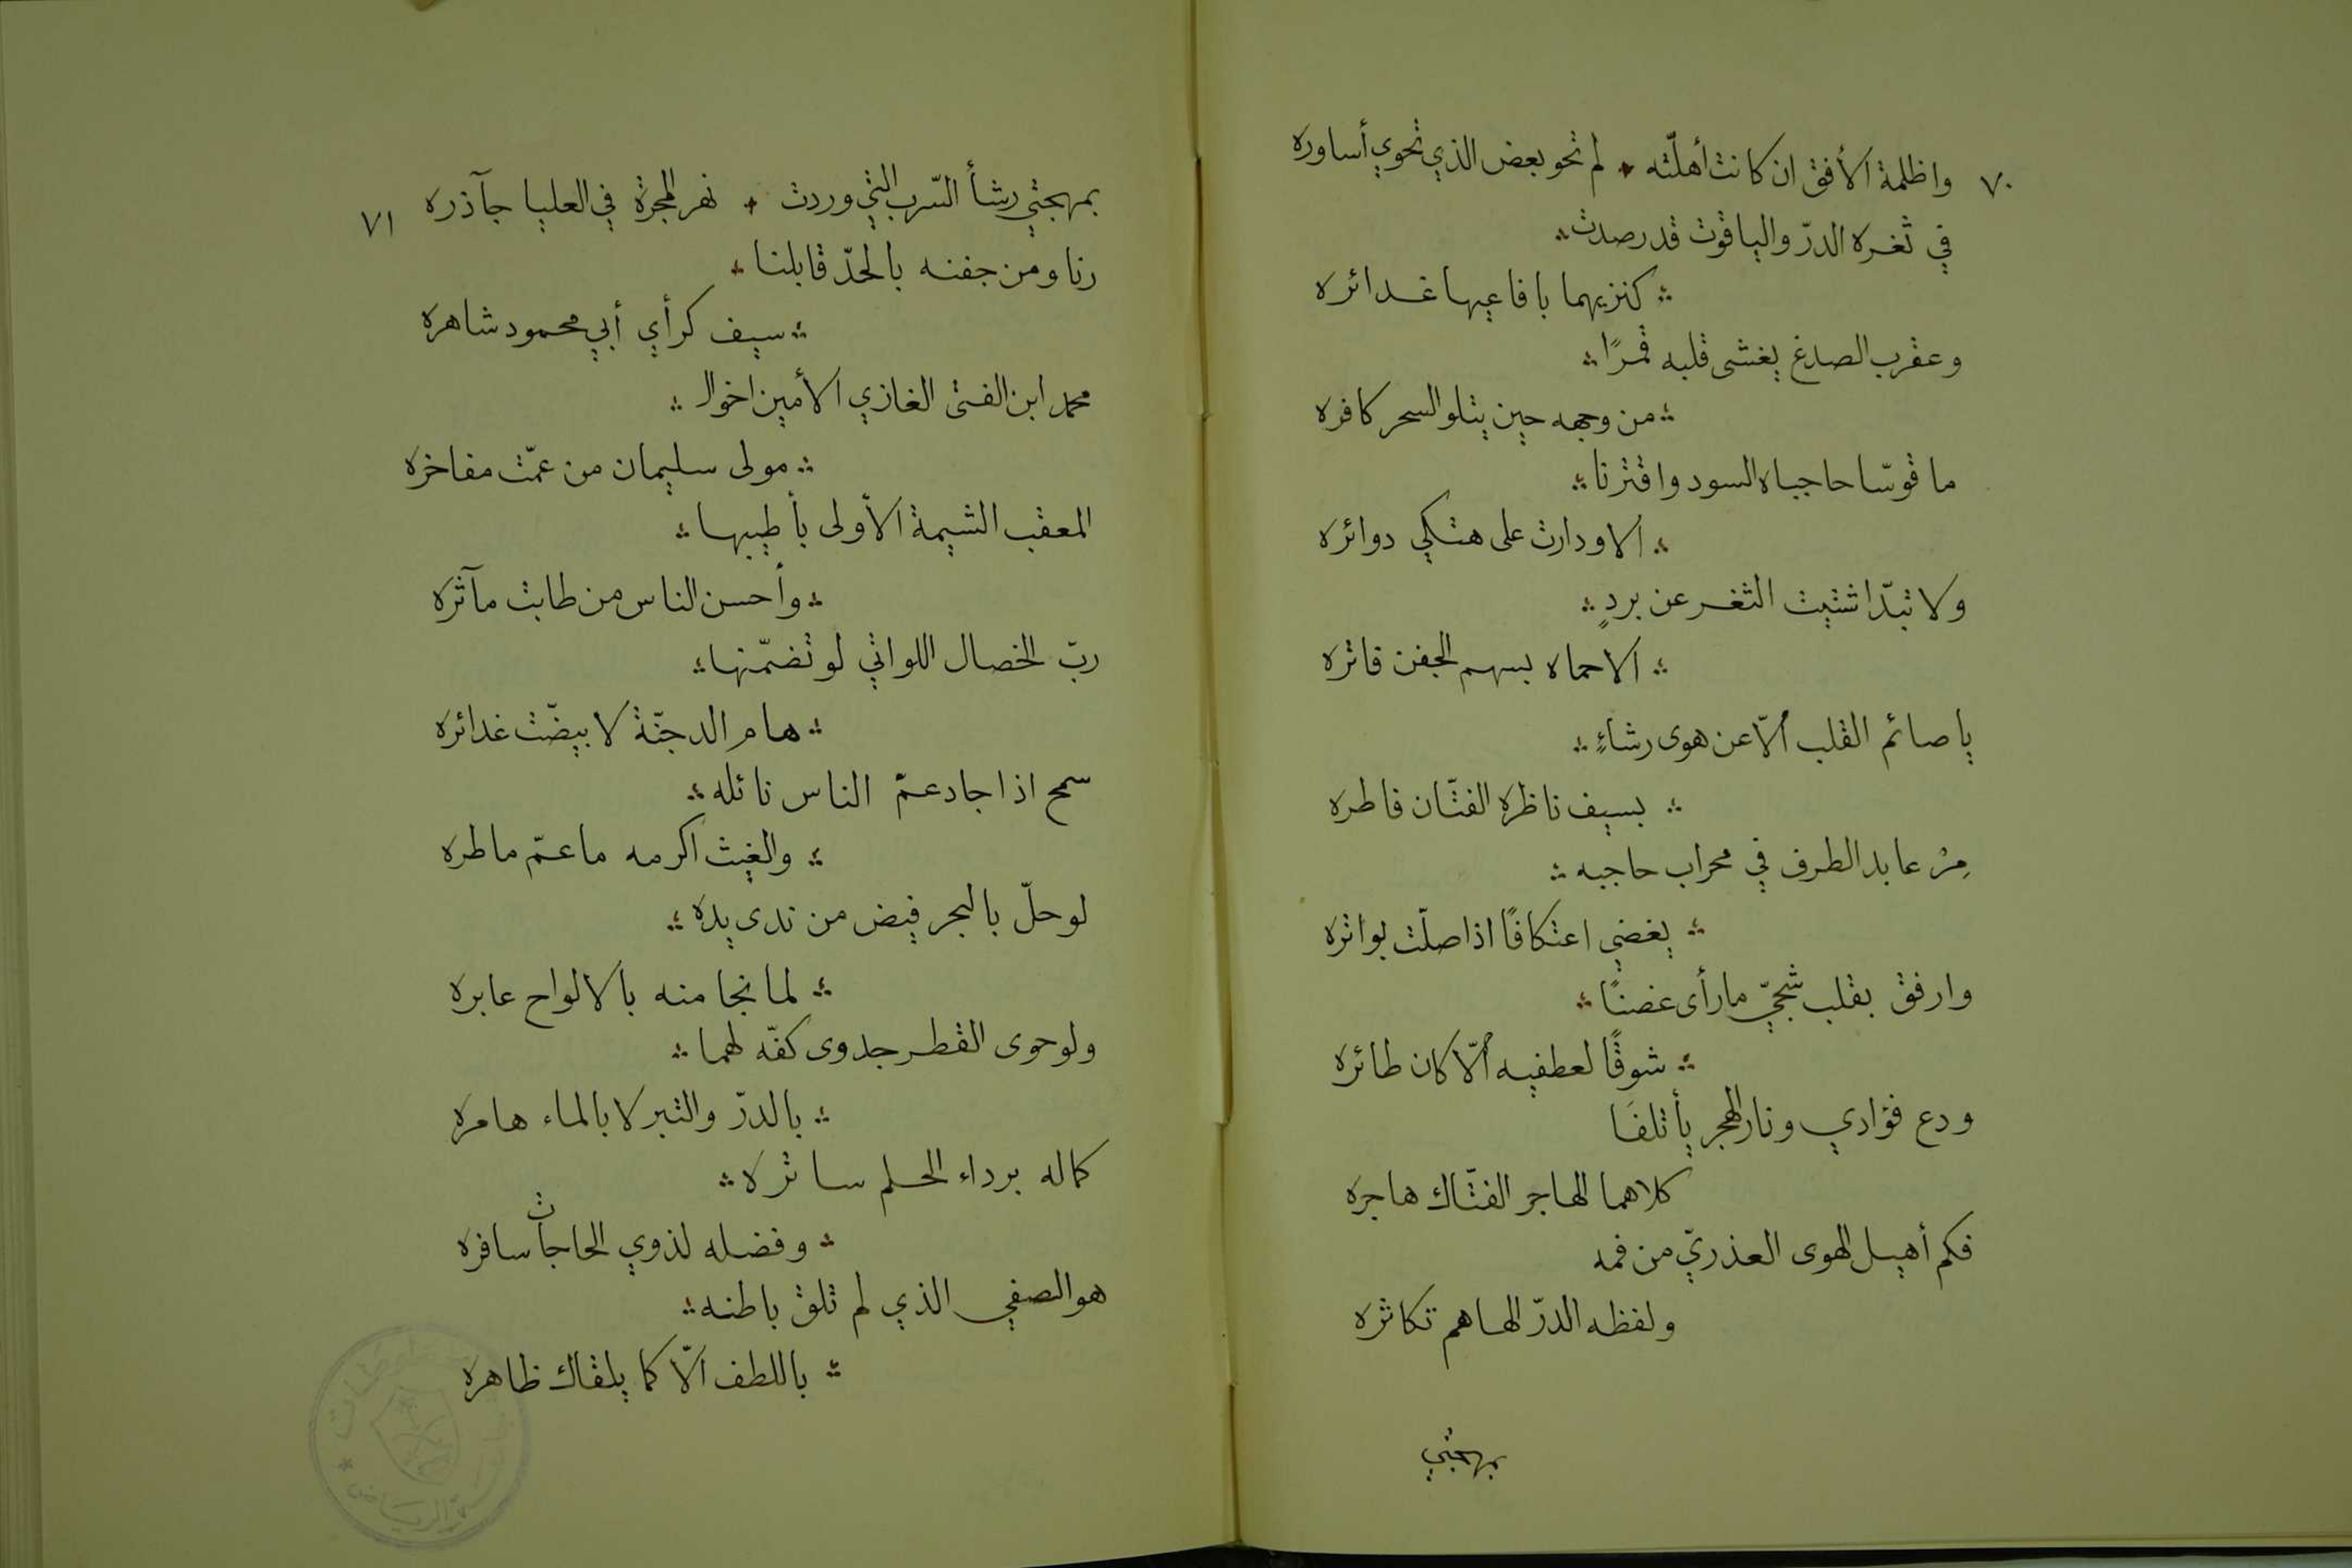 ٧٠
واظلمة الأفق ان كانت أهلّته ، لم تحو بعض الذي تحوي أساوره
في ثغره الدرّ والياقوت قد رصدت
كنزيهما بافاعيها غدائره
وعقرب الصدغ يغشى قلبه قمرًا
من وجهه حين يتلو السحر كافره
ما قوّسا حاجباه السود واقترنا
الا ودارت على هتكي دوائره
ولا تبدّا شتيت الثغر عن بردٍ
الا حماه بسهم الجفن فاتره
يا صائم القلب ألّا عن هوى رشاءٍ
بسيف ناظره الفتّان فاطره
مِرْ عابد الطرف في محراب حاجبه
يغضي اعتكافًا اذا صلّت بواتره
وارفق بقلب شجيّ ما رأى غصنًا
شوقًا لعطفيه ألّا كان طائره
ودع فؤادي ونار الهجر يأتلفَا
كلاهما الهاجر الفتّاك هاجره
فكم أهيل الهوى العذريّ من فمه
ولفظه الدرّ الهاهم تكاثره
بمهجتي
٧١
بمهجتي رشأ السّرب التي وردت ، نهر المجرة في العليا جآذره
رنا ومن جفنه بالحدّ قابلنا
سيف كرأي أبي محمود شاهره
محمد ابن الفتى الغازي الأمين اخو ال
مولى سليمان من عمّت مفاخره
المعقب الشيمة الأولى بأطيبها
وأحسن الناس من طابت مآثره
ربّ الخصال اللواتي لو تضمّنها
هام الدجنّة لا بيضّت غدائره
سمح اذا جاد عمّ الناس نائله
والغيث اكرمه ما عمّ ماطره
لو حلّ بالبحر فيض من ندى يده
لما نجا منه بالالواح عابره
ولو حوى القطر جدوى كفّه لهما
بالدرّ والتبر لا بالماء هامره
كماله برداء الحلم ساتره
وفضله لذوي الحاجات سافره
هو الصفي الذي لم تلق باطنه
باللطف الّا كما يلقاك ظاهره